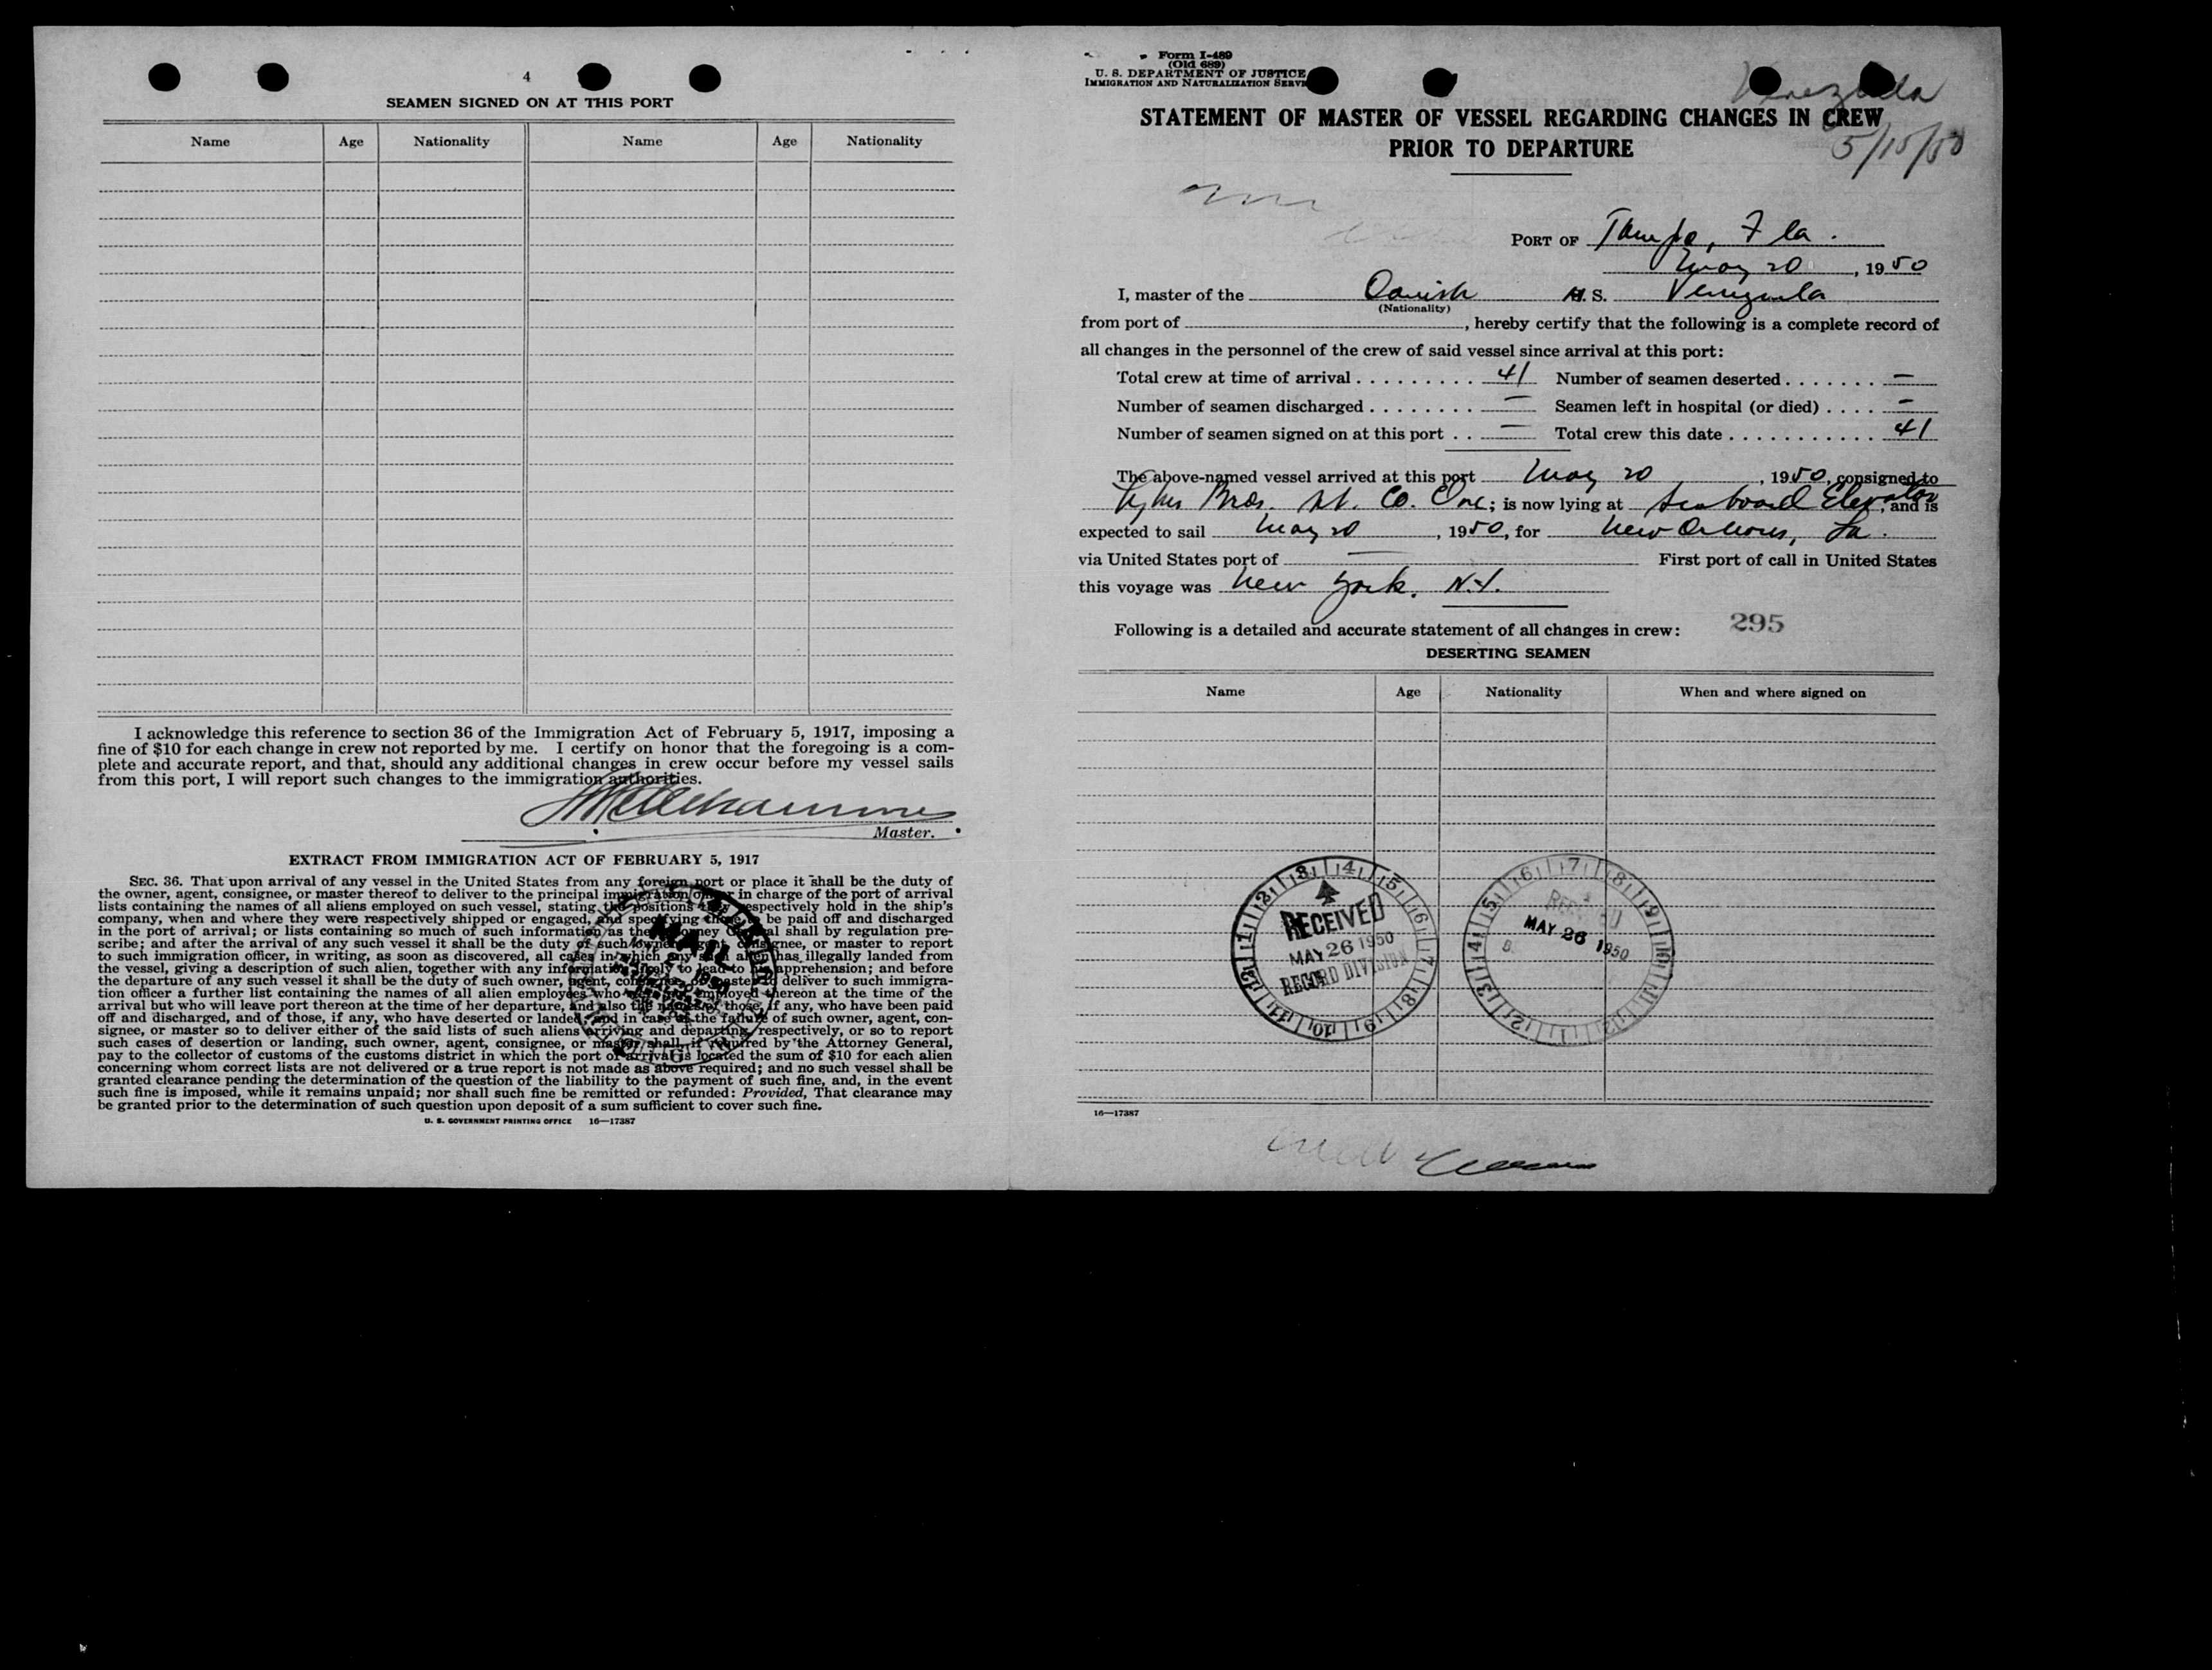 4
SEAMEN SIGNED ON AT THIS PORT
Name Age Nationality Name Age Nationality
I acknowledge this reference to section 36 of the Immigration Act of February 5, 1917, imposing a
fine of $10 for each change in crew not reported by me. I certify on honor that the foregoing is a com-
plete and accurate report, and that, should any additional changes in crew occur before my vessel sails
from this port, I will report such changes to the immigration authorities.
Master.
EXTRACT FROM IMMIGRATION ACT OF FEBRUARY 5, 1917
SEC. 36. That upon arrival of any vessel in the United States from any foreign port or place it shall be the duty of
the owner, agent, consignee, or master thereof to deliver to the principal immigration officer in charge of the port of arrival
lists containing the names of all aliens employed on such vessel, stating the positions they respectively hold in the ship's
company, when and where they were respectively shipped or engaged, and specifying those to be paid off and discharged
in the port of arrival; or lists containing so much of such information as the Attorney General shall by regulation pre-
scribe; and after the arrival of any such vessel it shall be the duty of such owner, agent, consignee, or master to report
to such immigration officer, in writing, as soon as discovered, all cases in which any such alien has illegally landed from
the vessel, giving a description of such alien, together with any information likely to lead to his apprehension; and before
the departure of any such vessel it shall be the duty of such owner, agent, consignee, or master to deliver to such immigra-
tion officer a further list containing the names of all alien employees who were not employed thereon at the time of the
arrival but who will leave port thereon at the time of her departure, and also the names of those, if any, who have been paid
off and discharged, and of those, if any, who have deserted or landed; and in case of the failure of such owner, agent, con-
signee, or master so to deliver either of the said lists of such aliens arriving and departing, respectively, or so to report
such cases of desertion or landing, such owner, agent, consignee, or master shall, if required by the Attorney General,
pay to the collector of customs of the customs district in which the port of arrival is located the sum of $10 for each alien
concerning whom correct lists are not delivered or a true report is not made as above required; and no such vessel shall be
granted clearance pending the determination of the question of the liability to the payment of such fine, and, in the event
such fine is imposed, while it remains unpaid; nor shall such fine be remitted or refunded: Provided, That clearance may
be granted prior to the determination of such question upon deposit of a sum sufficient to cover such fine.
U. S. GOVERNMENT PRINTING OFFICE 16—17387
MAIL
Form I-489
(Old 689)
U. S. DEPARTMENT OF JUSTICE
IMMIGRATION AND NATURALIZATION
Venezuela
5/15/50
STATEMENT OF MASTER OF VESSEL REGARDING CHANGES IN CREW
PRIOR TO DEPARTURE
PORT OF Tampa, Fla.
May 20, 1950
I, master of the Danish M. S. Venezuela
(Nationality)
from port of , hereby certify that the following is a complete record of
all changes in the personnel of the crew of said vessel since arrival at this port:
Total crew at time of arrival . . . . . . . . . 41 Number of seamen deserted . . . . . . . —
Number of seamen discharged . . . . . . . . — Seamen left in hospital (or died) . . . . —
Number of seamen signed on at this port . . — Total crew this date . . . . . . . . . . . 41
The above-named vessel arrived at this port May 20, 1950, consigned to
Lykes Bros. SS. Co. Inc; is now lying at Seaboard Elevator, and is
expected to sail May 20, 1950, for New Orleans, La.
via United States port of — First port of call in United States
this voyage was New York, N.Y.
Following is a detailed and accurate statement of all changes in crew: 295
DESERTING SEAMEN
Name Age Nationality When and where signed on
RECEIVED
MAY 26 1950
RECORD DIVISION
RECEIVED
MAY 26 1950
16—17387